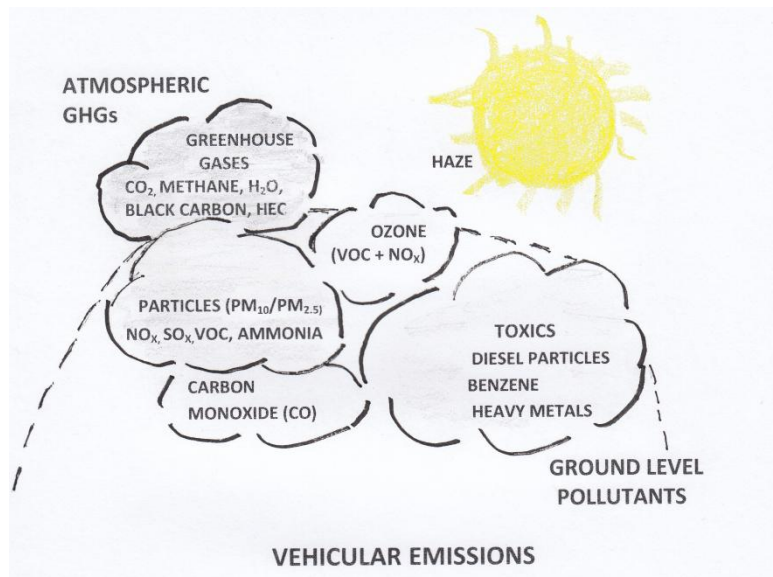 ATMOSPHERIC
GHGs
GREENHOUSE
GASES
CO₂, METHANE, H₂O,
BLACK CARBON, HEC
HAZE
OZONE
(VOC + NOₓ)
PARTICLES (PM₁₀/PM₂.₅)
NOₓ, SOₓ, VOC, AMMONIA
TOXICS
DIESEL PARTICLES
BENZENE
HEAVY METALS
CARBON
MONOXIDE (CO)
GROUND LEVEL
POLLUTANTS
VEHICULAR EMISSIONS